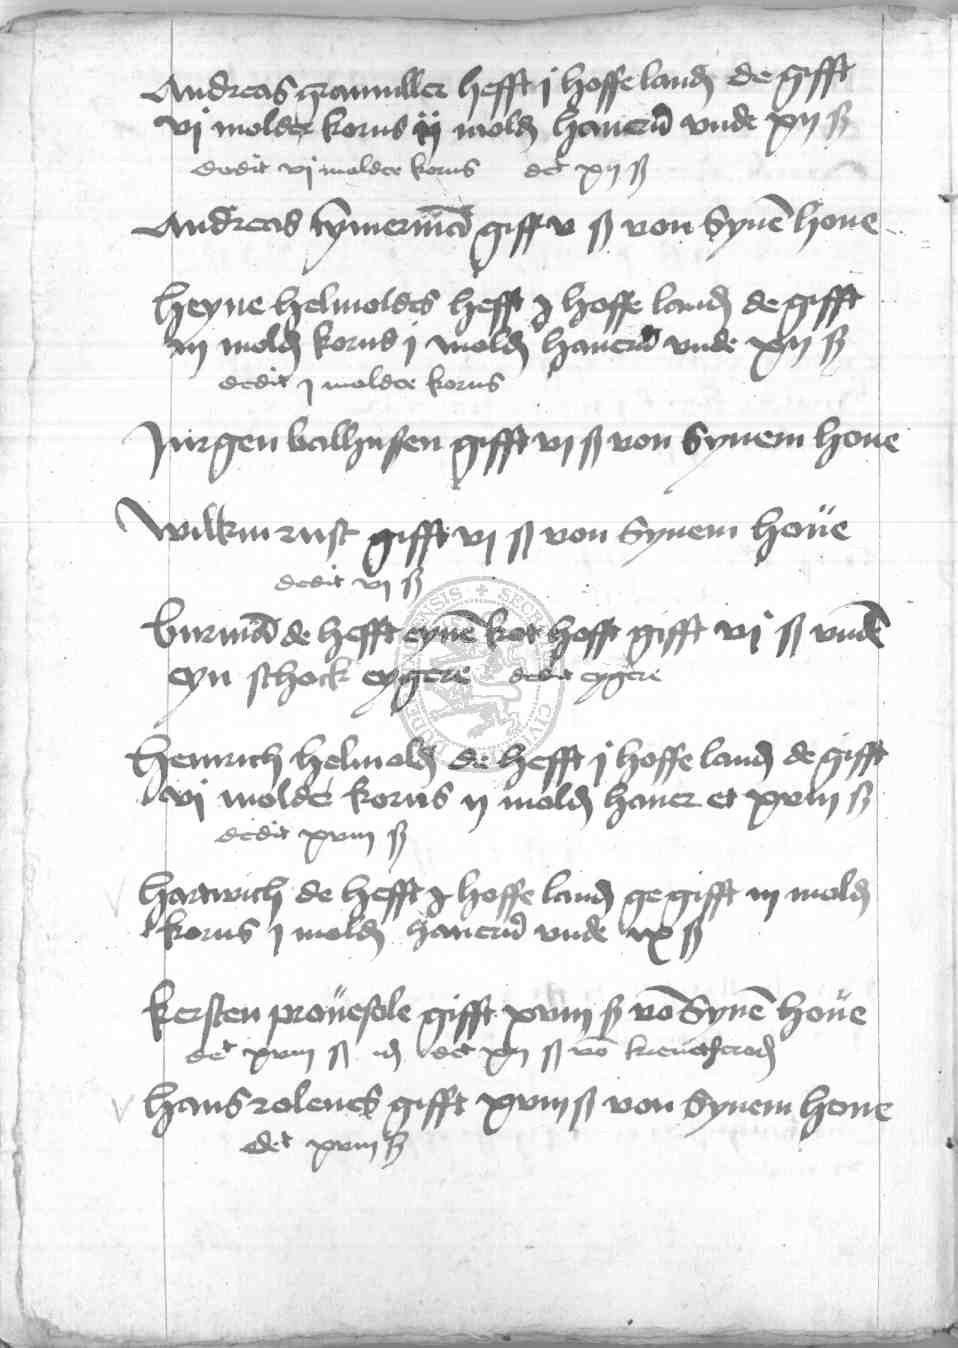 Andreas gramuller hefft j hoffe land de gifft
vj molder korns ij mold hauern vnde xij ß
dedit vj molder korns det xij ß
Andreas tymerman gifft v ß von Synē houe
heyne helmoldes hefft hoffe land de gifft
iij mold korns j mold hauern vnde xij ß
dedit j molder korns
Jurgen balhusen gifft vj ß von Synem houe
Wilkin rust gifft vj ß von Synem houe
dedit vj ß
burman de hefft eynē kot hofft gifft vj ß vnde
eyn schock eygere dedit eygere
Heinrich helmold de hefft j hoffe land de gifft
vj molder korns ij mold hauer et xviij ß
dedit xviij ß
hartwich de hefft hoffe land ge gifft iij mold
korns j mold hauern vnde ix ß
kersten prouesole gifft xviij ß vō Synē houe
det xviij ß det xij ß vō
hans roleues gifft xviij ß von Synem houe
det xviij ß